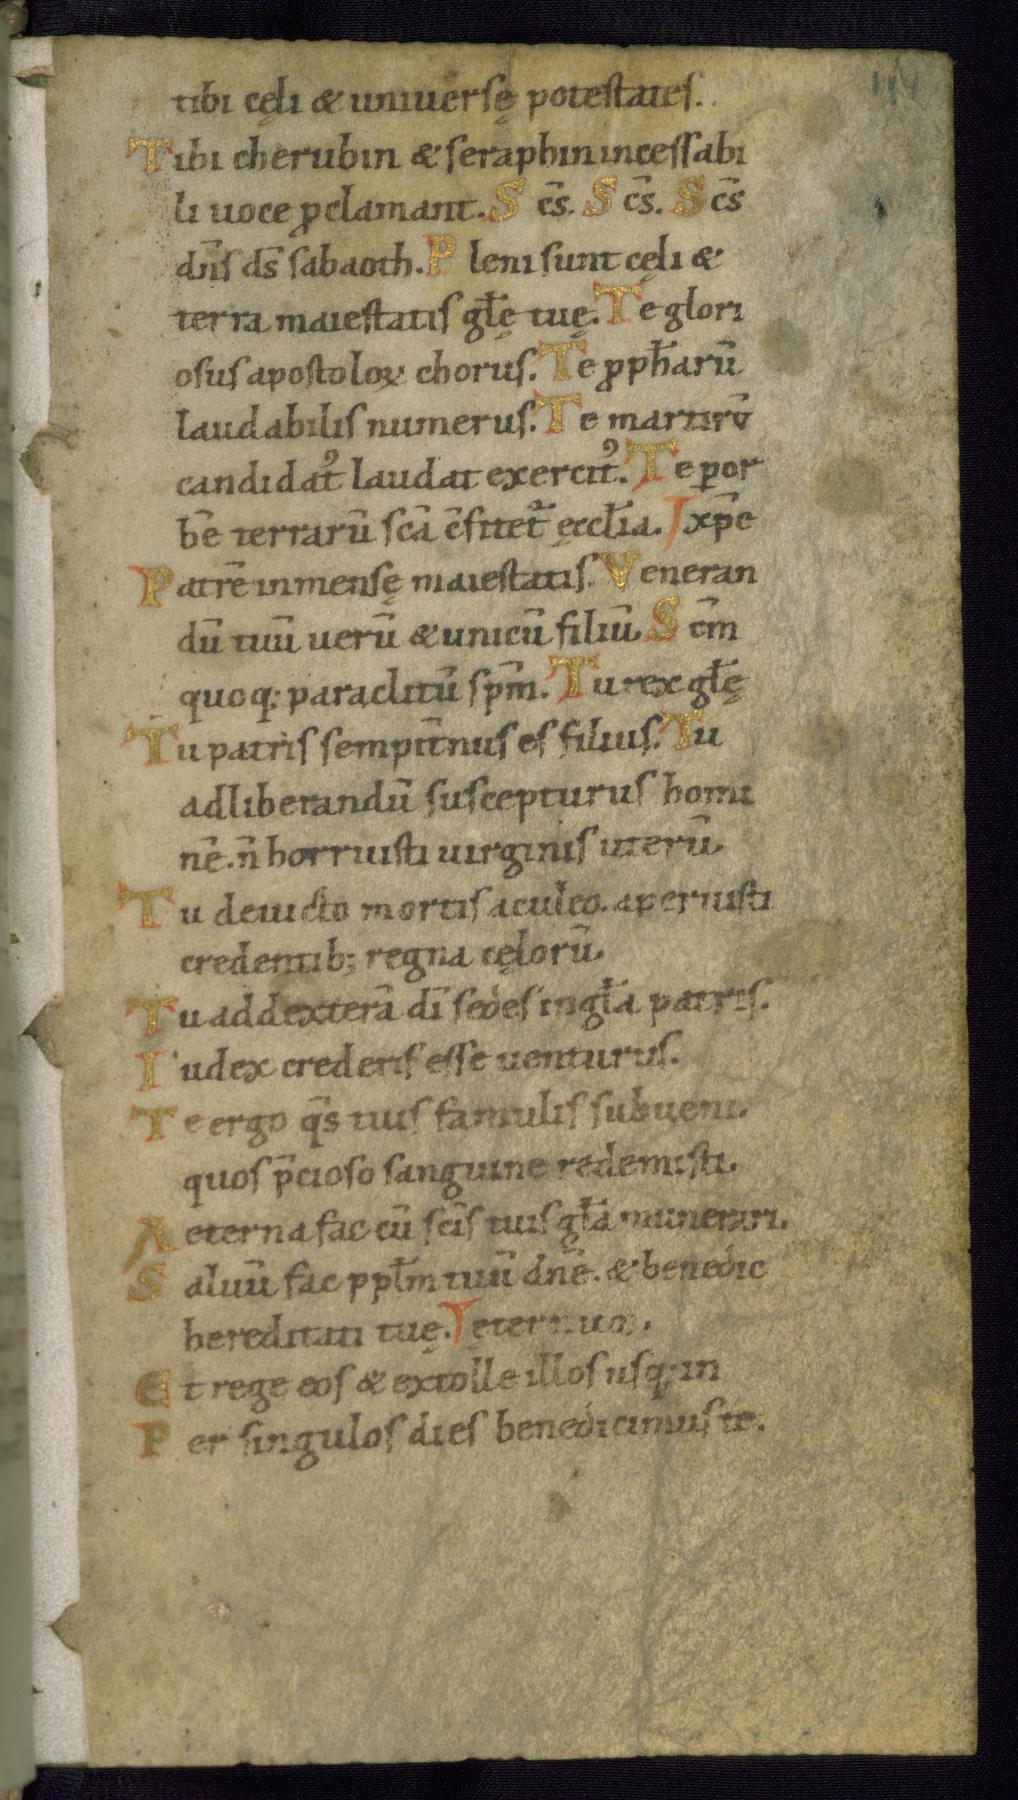 tibi cęli & uniuersę potestates.
Tibi cherubin & seraphin incessabi
li uoce ꝓclamant. S cs̄. S cs̄. S cs̄
dn̄s ds̄ sabaoth. P leni sunt cęli &
terra maiestatis gl̄ę tuę. Te glori
osus apostoloꝝ chorus. Te ꝓph̄arū
laudabilis numerus. Te martirū
candidatꝰ laudat exercitꝰ. Te ꝑ or
bē terrarū scā c̄fitet᷑ ęccl̄ia. I xp̄e
Patrē inmensę maiestatis. Veneran
dū tuū uerū & unicū filiū. S cm̄
quoq; paraclitū sp̄m. Tu rex gl̄ę
Tu patris sempit̄nus es filius. Tu
ad liberandū suscepturus homi
nē. n̄ horruisti uirginis uterū.
Tu deuicto mortis aculeo. aperuisti
credentib; regna cęlorū.
Tu ad dexterā dī sedes in gl̄a patris.
Iudex crederis esse uenturus.
Te ergo qs̄ tuis famulis subueni.
quos p̄cioso sanguine redemisti.
Aeterna fac cū scīs tuis gl̄a munerari.
Saluū fac ppl̄m tuū dnē. & benedic
hereditati tuę. I ęternum.
Et rege eos & extolle illos usq; in
Per singulos dies benedicimus te.